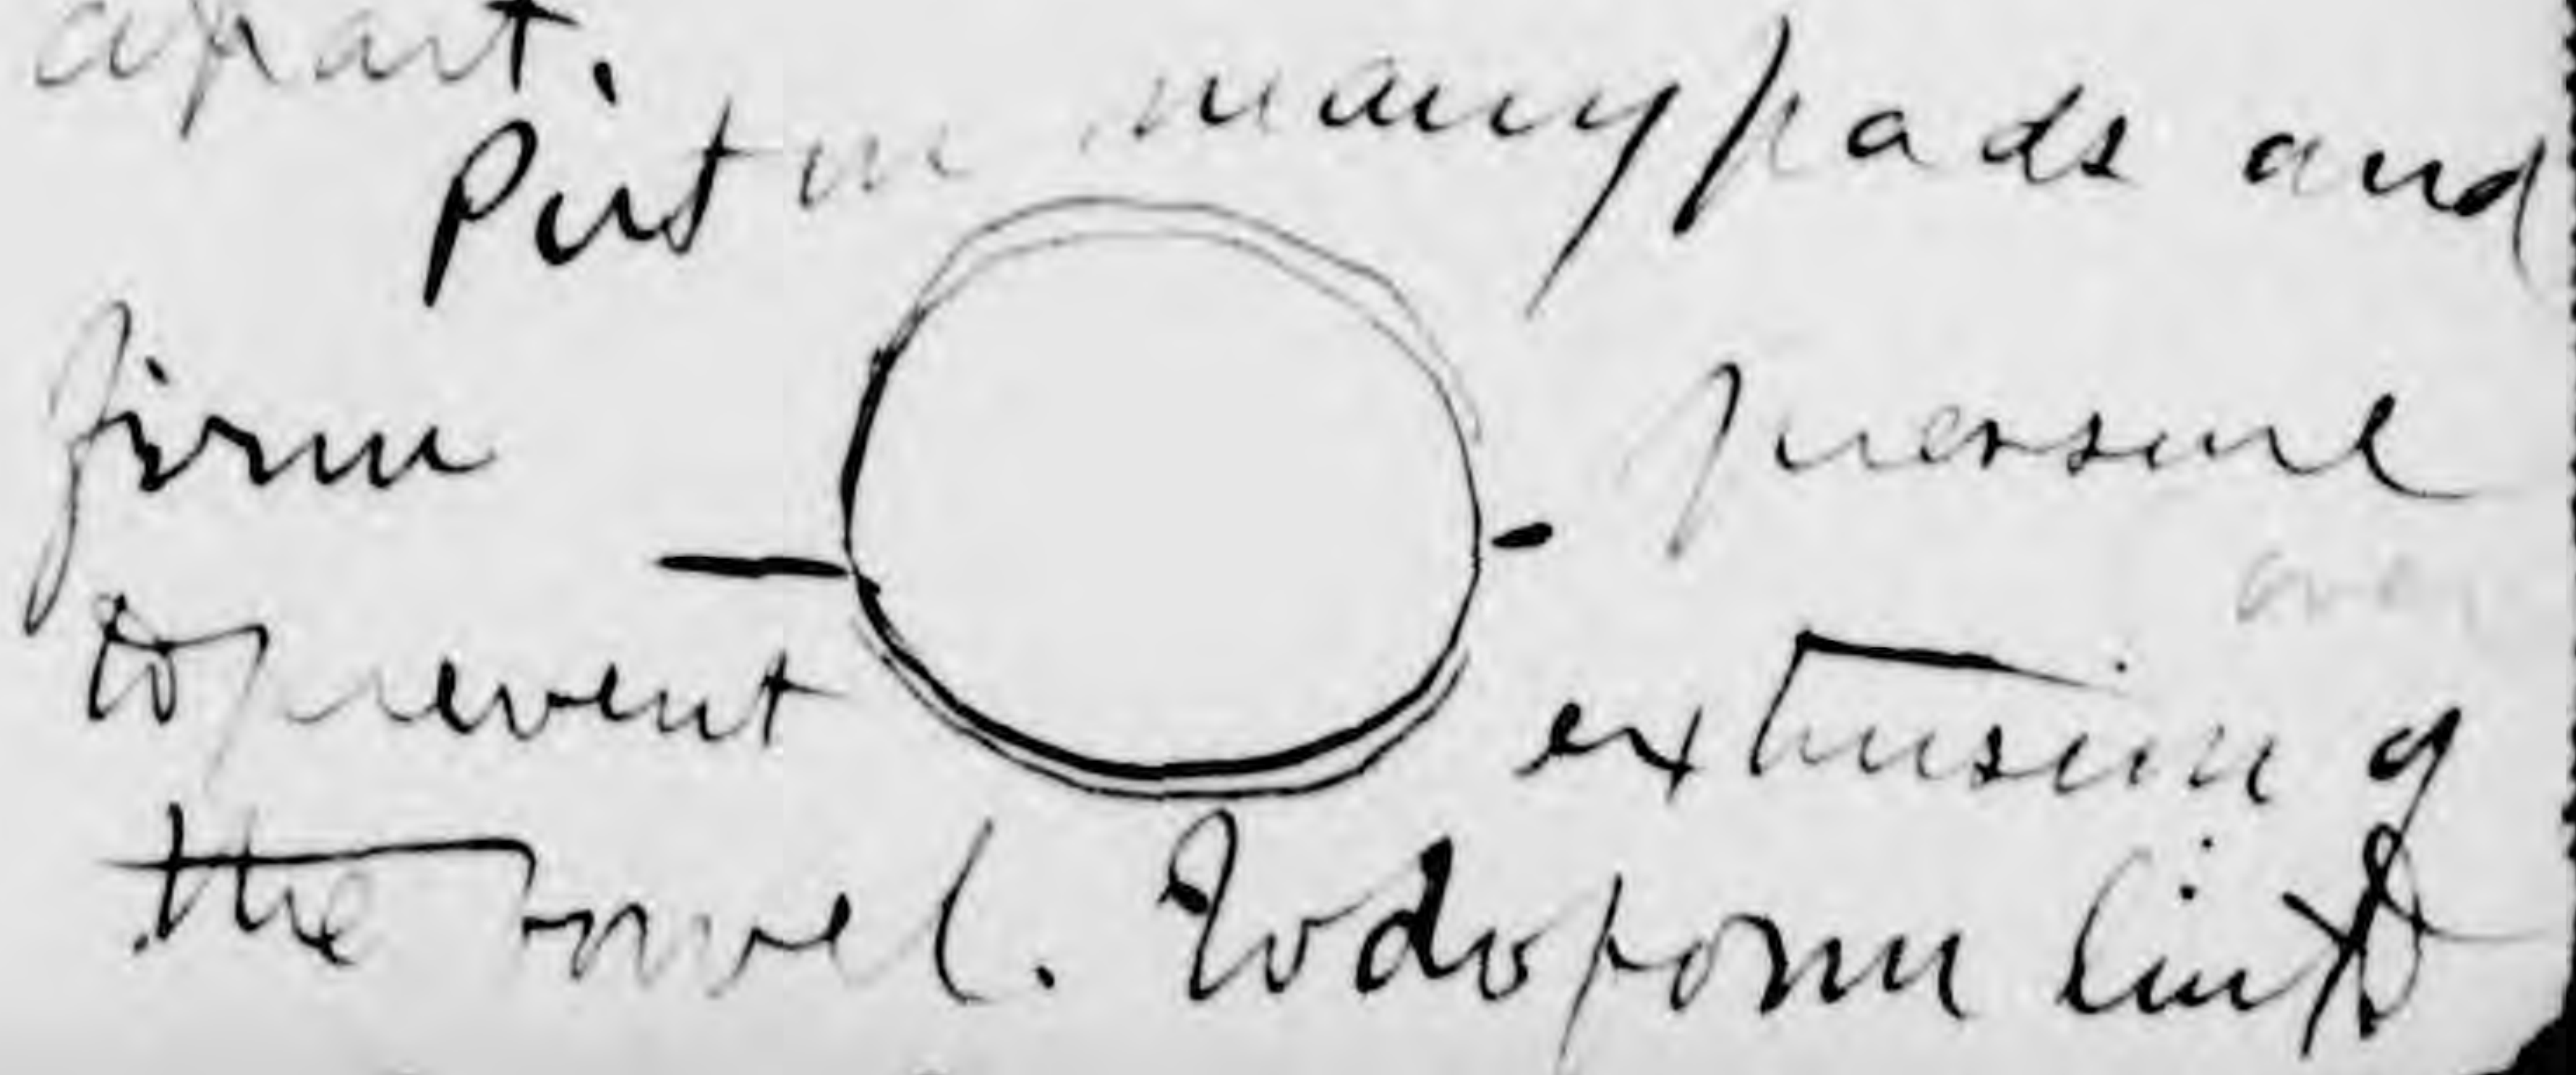 apart.
Put in many pads and
firm pressure
over
to prevent extrusion of
the bowel. Iodoform lint